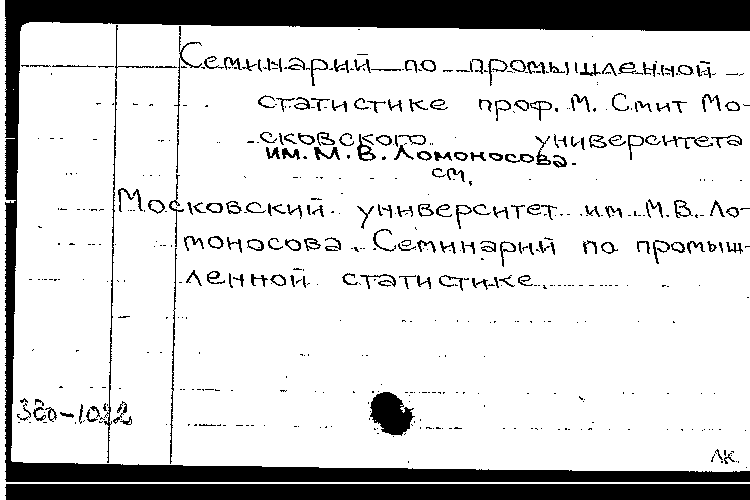 Семинарий по промышленной
статистике проф. М. Смит Мо-
сковского университета
им. М. В. Ломоносова.
см.
Московский университет им. М. В. Ло-
моносова. Семинарий по промыш-
ленной статистике.
лк